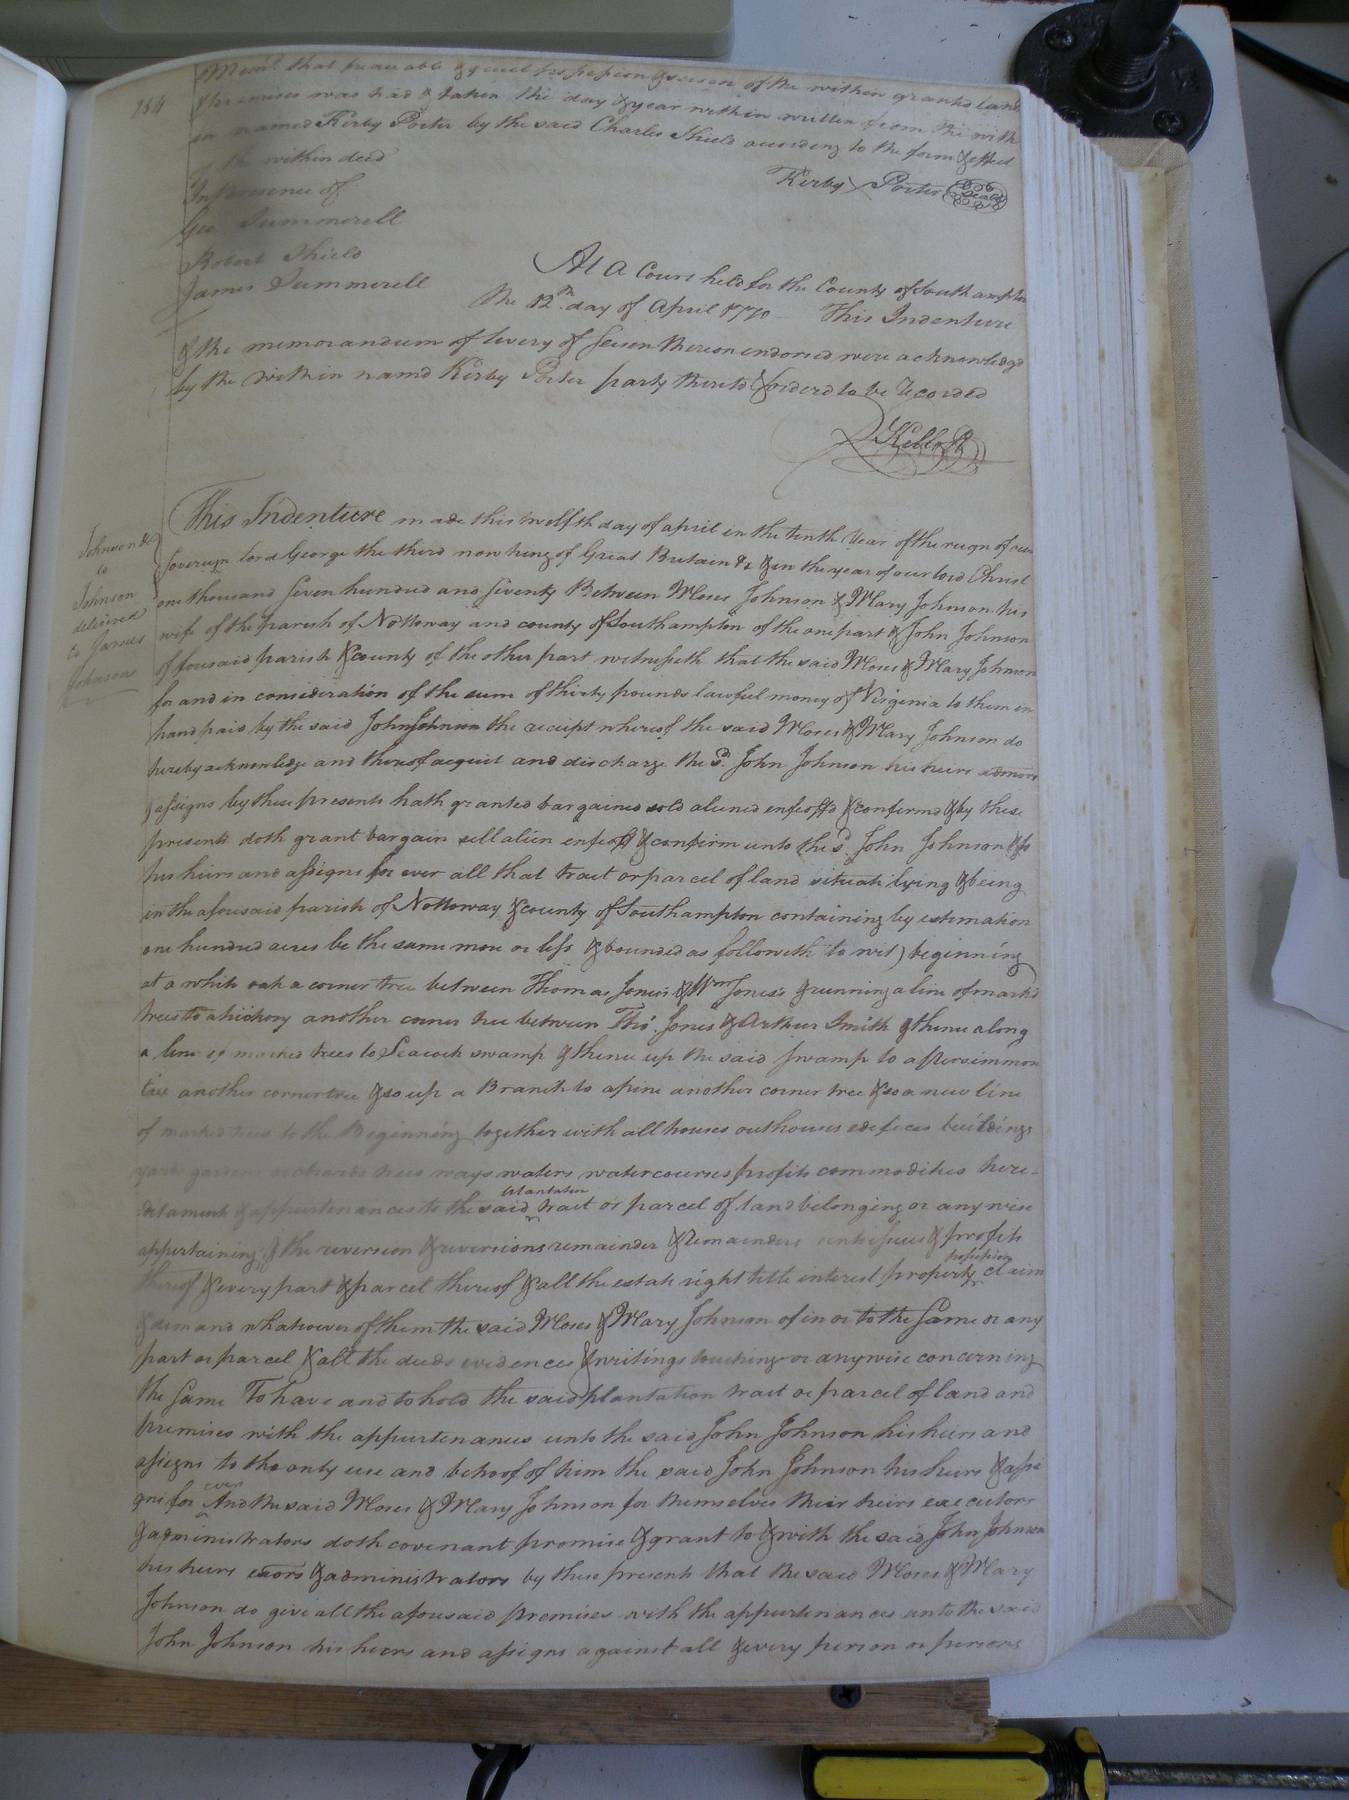 254
Mem.o that peaceable & quiet possession & seisen of the within granted land
& premises was had & taken the day & year within written from the with
in named Kirby Porter by the said Charles Shield according to the form & effect
of the within deed
In presence of
Kirby Porter Seal
Geo Summerell
Robert Shield
James Summerell
At a Court held for the County of Southampton
the 12th day of April 1770 This Indenture
& the memorandum of livery of Seisen thereon endorsed were acknowledgd
by the within namd Kirby Porter party thereto & orderd to be recorded
Johnson &c
to
Johnson
delivered
to James
Johnson
This Indenture made this twelfth day of april in the tenth Year of the reign of our
Sovereign lord George the third now king of Great Britain &c & in the year of our lord Christ
one thousand Seven hundred and Seventy Between Moses Johnson & Mary Johnson his
wife of the parish of Nottoway and county of Southampton of the one part & John Johnson
of foresaid parish & county of the other part witnesseth that the said Moses & Mary Johnson
for and in consideration of the sum of thirty pounds lawful money of Virginia to them in
hand paid by the said John Johnson the receipt whereof the said Moses & Mary Johnson do
hereby acknowledge and thereof acquit and discharge the sd. John Johnson his heirs admors
& assigns by these presents hath granted bargained sold aliened enfeoffd & confirmd & by these
presents doth grant bargain sell alien enfeoff & confirm unto the sd. John Johnson & to
his heirs and assigns for ever all that tract or parcel of land situate lying & being
in the afousaid parish of Nottoway & county of Southampton containing by estimation
one hundred acres be the same more or less & bounded as followeth to wit) beginning
at a white oak a corner tree between Thomas Jones's & Wm Jones's & running a line of markd
trees to a hickory another corner tree between Tho.s Jones & Arthur Smith & thence along
a line of marked trees to Seacock swamp & thence up the said swamp to a persimmon
tree another corner tree & so up a Branch to a pine another corner tree & so a new line
of marked trees to the Beginning together with all houses outhouses edefices buildings
yards gardens orchards trees ways waters watercourses profits commodities here-
ditaments & appurtenances to the said plantation tract or parcel of land belonging or any wise
appertaining & the reversion & reversions remainder & remainders rents issues & profits
thereof & every part & parcel thereof & all the estate right title interest property possession claim
& demand whatsoever of them the said Moses & Mary Johnson of in or to the Same or any
part or parcel & all the deeds evidences & writings touching or anywise concerning
the Same To have and to hold the said plantation tract or parcel of land and
premises with the appurtenances unto the said John Johnson his heirs and
assigns to the only use and behoof of him the said John Johnson his heirs & assi
gns for ever And the said Moses & Mary Johnson for themselves their heirs executors
& administrators doth covenant promise & grant to & with the said John Johnson
his heirs exors & administrators by these presents that the said Moses & Mary
Johnson do give all the afousaid premises with the appurtenances unto the said
John Johnson his heirs and assigns against all & every person or persons